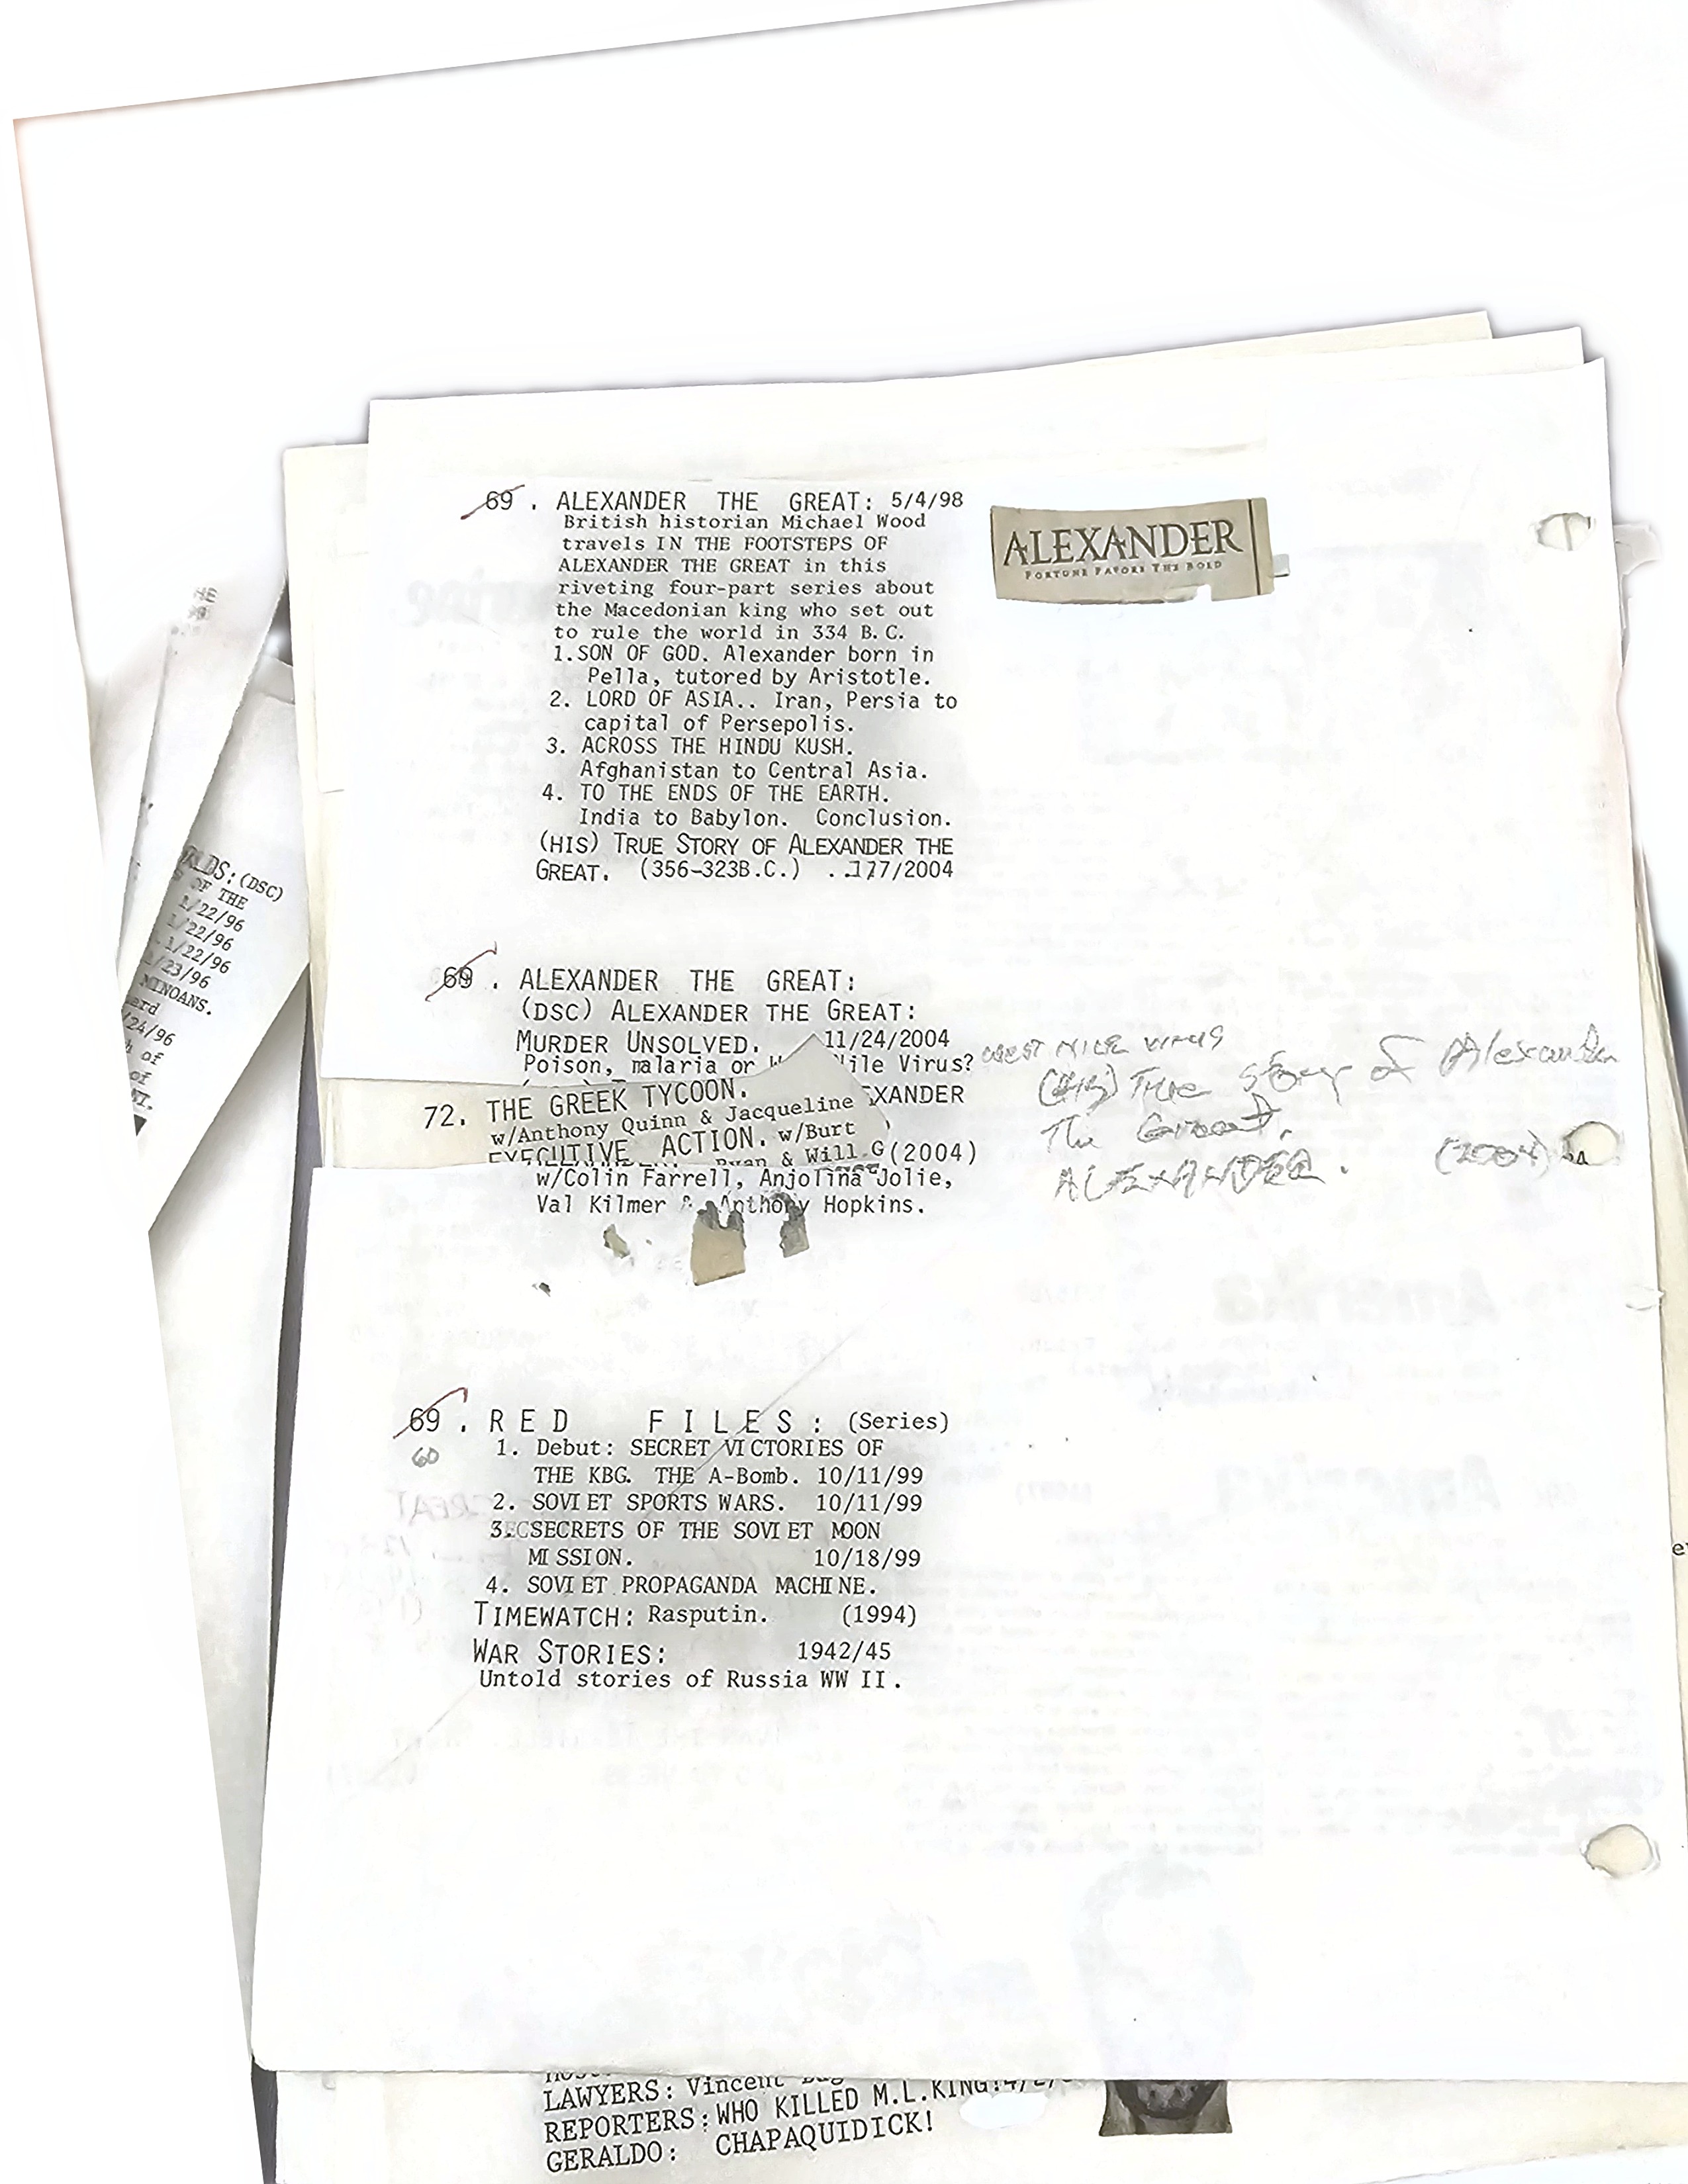 69 . ALEXANDER THE GREAT: 5/4/98
British historian Michael Wood
travels IN THE FOOTSTEPS OF
ALEXANDER THE GREAT in this
riveting four-part series about
the Macedonian king who set out
to rule the world in 334 B.C.
1.SON OF GOD. Alexander born in
Pella, tutored by Aristotle.
2. LORD OF ASIA.. Iran, Persia to
capital of Persepolis.
3. ACROSS THE HINDU KUSH.
Afghanistan to Central Asia.
4. TO THE ENDS OF THE EARTH.
India to Babylon. Conclusion.
(HIS) TRUE STORY OF ALEXANDER THE
GREAT. (356-323B.C.)
ALEXANDER
FORTUNE FAVORS THE BOLD
69 . ALEXANDER THE GREAT:
(DSC) ALEXANDER THE GREAT:
MURDER UNSOLVED. 11/24/2004
Poison, malaria or Virus?
WEST NILE VIRUS
(HIS) True story of Alexander
The Great.
ALEXANDER. (2004)
72. THE GREEK TYCOON.
w/Anthony Quinn & Jacqueline
EXECUTIVE ACTION. w/Burt
& Will G
(2004)
w/Colin Farrell, Anjolina Jolie,
Val Kilmer & Anthony Hopkins.
69 . RED FILES: (Series)
60
1. Debut: SECRET VICTORIES OF
THE KBG. THE A-Bomb. 10/11/99
2. SOVIET SPORTS WARS. 10/11/99
3. SECRETS OF THE SOVIET MOON
MISSION. 10/18/99
4. SOVIET PROPAGANDA MACHINE.
TIMEWATCH: Rasputin. (1994)
WAR STORIES: 1942/45
Untold stories of Russia WW II.
(DSC)
OF THE
1/22/96
1/22/96
1/22/96
/23/96
MINOANS.
/24/96
of
of
LAWYERS: Vincent
REPORTERS: WHO KILLED M.L.KING?
GERALDO: CHAPAQUIDICK!